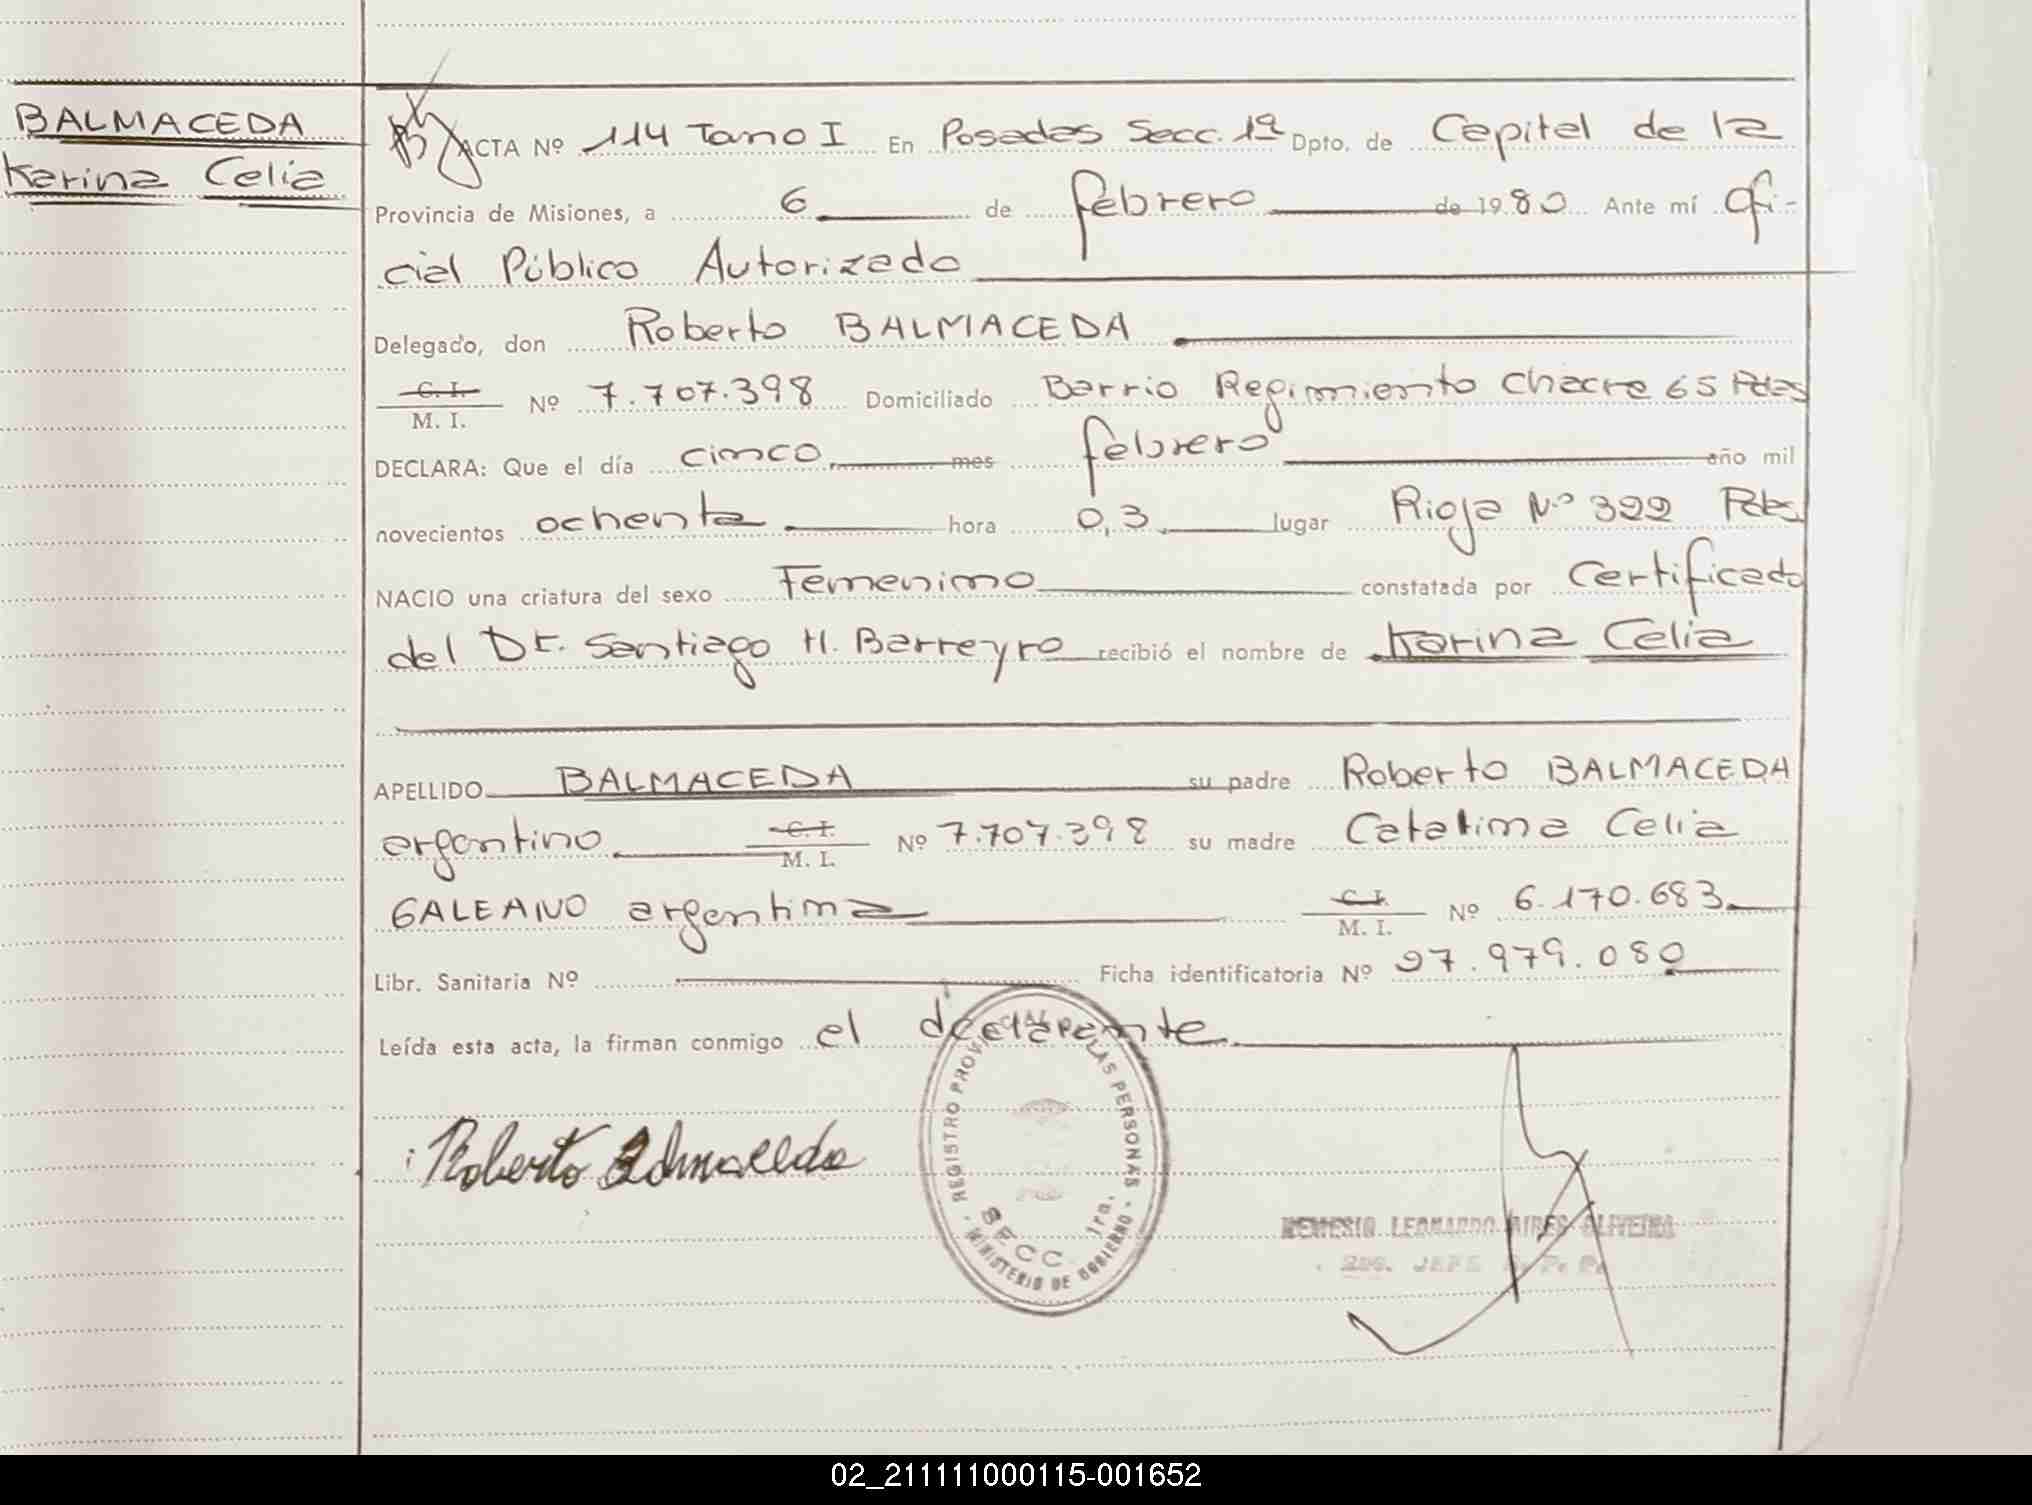 BALMACEDA
Karina Celia
ACTA Nº 114 Tomo I En Posadas Secc. 1ª Dpto. de Capital de la
Provincia de Misiones, a 6 de febrero de 1980 Ante mí ofi-
cial Público Autorizado
Delegado, don Roberto BALMACEDA
C. I.
M. I. Nº 7.707.398 Domiciliado Barrio Regimiento Chacra 65 Pdas
DECLARA: Que el día cinco mes febrero año mil
novecientos ochenta hora 0,3 lugar Rioja Nº 322 Pdas
NACIO una criatura del sexo Femenino constatada por Certificado
del Dr. Santiago H. Barreyro recibió el nombre de Karina Celia
APELLIDO BALMACEDA su padre Roberto BALMACEDA
argentino C. I.
M. I. Nº 7.707.398 su madre Catalina Celia
GALEANO argentina C. I.
M. I. Nº 6.170.683
Libr. Sanitaria Nº Ficha identificatoria Nº 27.979.080
Leída esta acta, la firman conmigo el declarante
Roberto Balmaceda
REGISTRO PROVINCIAL DE LAS PERSONAS
SECC. 1ra.
MINISTERIO DE GOBIERNO
NEMESIO LEONARDO AIRES OLIVEIRA
JEFE
02_211111000115-001652